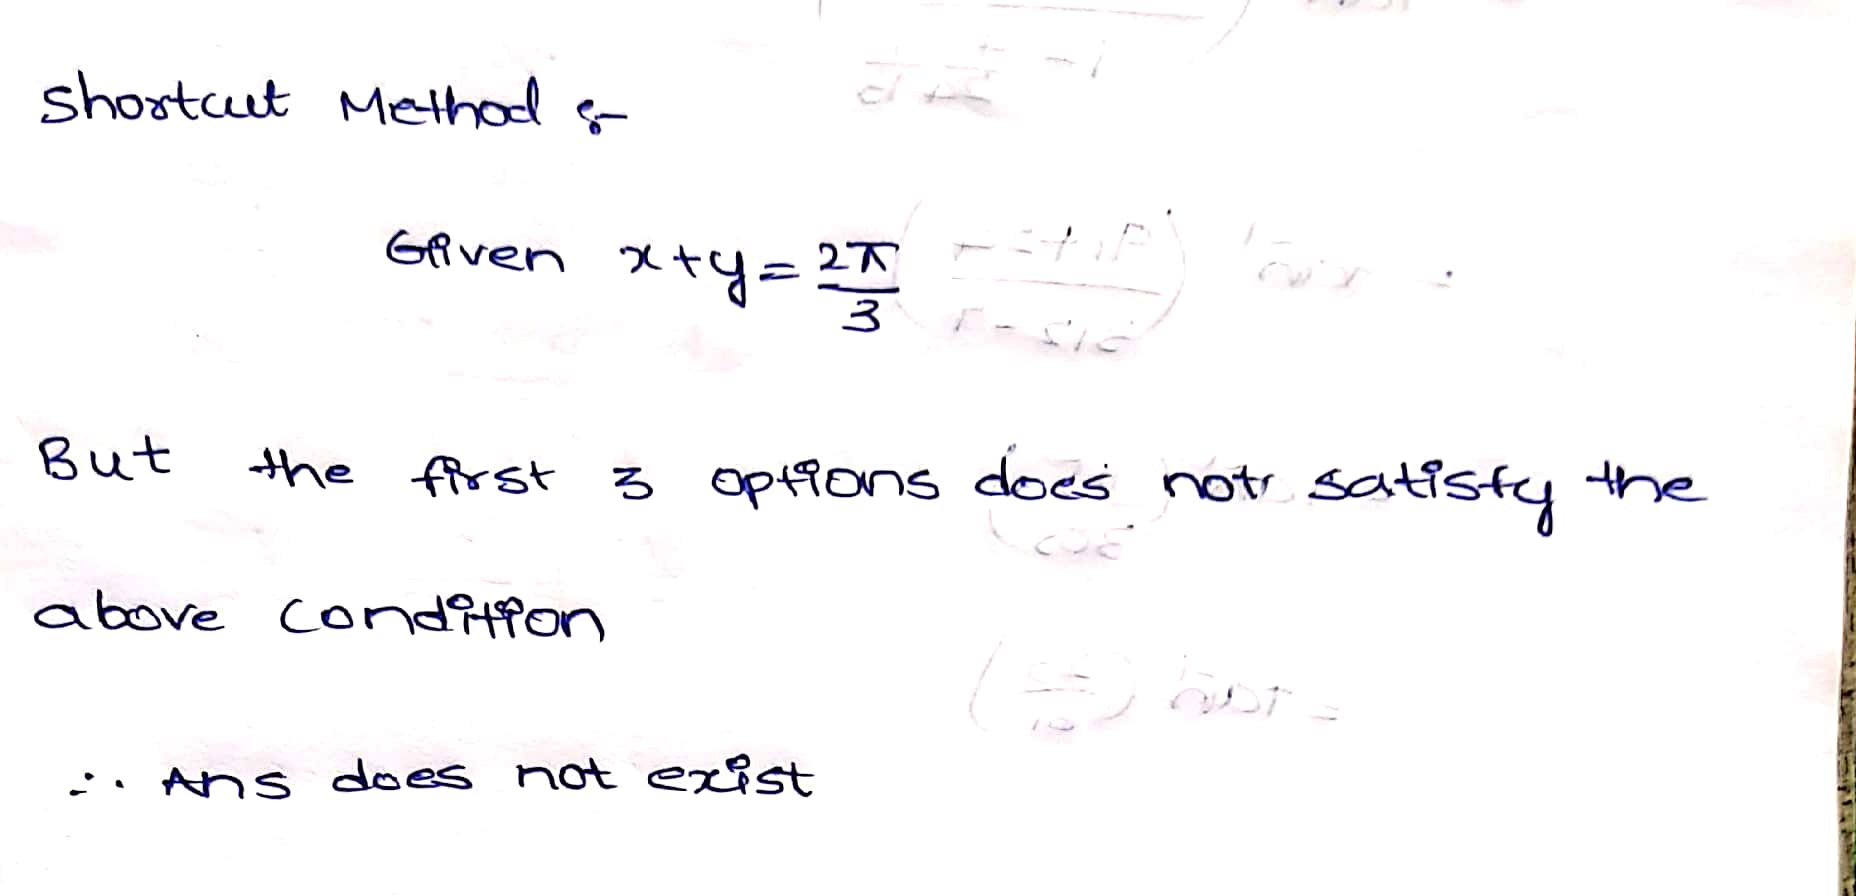 Shortcut Method :-
Given x+y = 2π/3
But the first 3 options does not satisfy the
above condition
∴ Ans does not exist